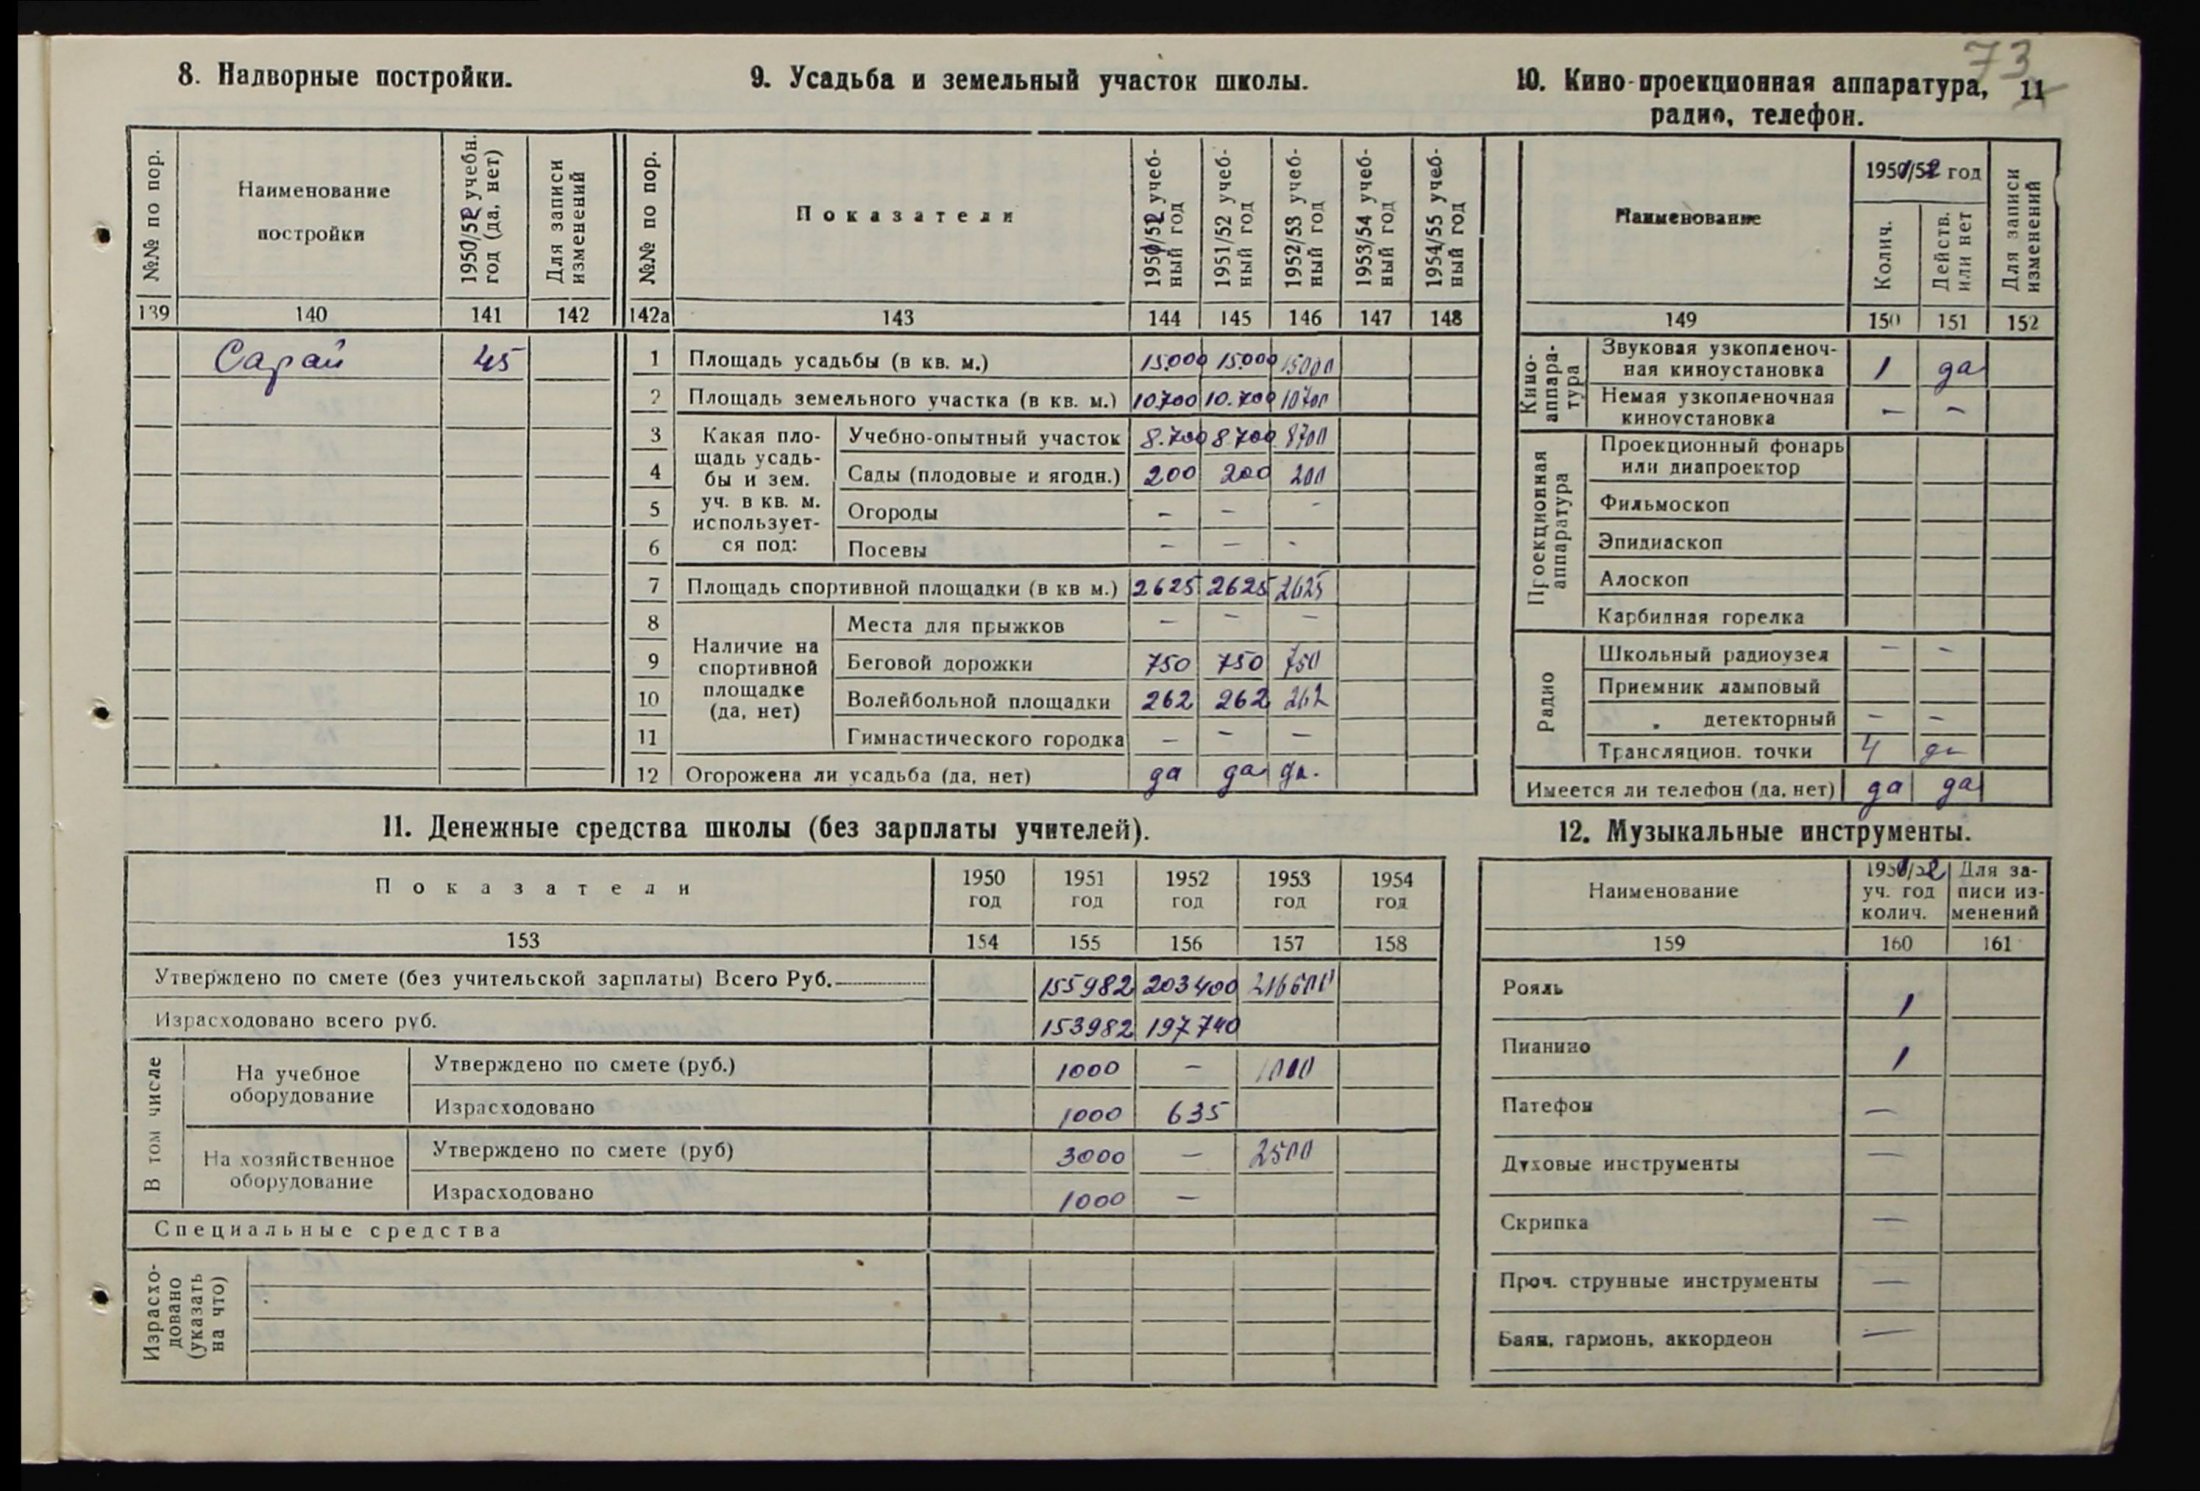 73
11
8. Надворные постройки.
№№ по пор. | Наименование постройки | 1950/52 учебн. год (да, нет) | Для записи изменений
139 | 140 | 141 | 142
Сарай | 45
9. Усадьба и земельный участок школы.
№№ по пор. | Показатели | 1951/52 учебный год | 1951/52 учебный год | 1952/53 учебный год | 1953/54 учебный год | 1954/55 учебный год
142а | 143 | 144 | 145 | 146 | 147 | 148
1 | Площадь усадьбы (в кв. м.) | 15.000 | 15.000 | 15000
2 | Площадь земельного участка (в кв. м.) | 10.700 | 10.700 | 10700
Какая площадь усадьбы и зем. уч. в кв. м. используется под:
3 | Учебно-опытный участок | 8.700 | 8700 | 8700
4 | Сады (плодовые и ягодн.) | 200 | 200 | 200
5 | Огороды | – | – | –
6 | Посевы | – | – | –
7 | Площадь спортивной площадки (в кв м.) | 2625 | 2625 | 2625
Наличие на спортивной площадке (да, нет)
8 | Места для прыжков | – | – | –
9 | Беговой дорожки | 750 | 750 | 750
10 | Волейбольной площадки | 262 | 262 | 262
11 | Гимнастического городка | – | – | –
12 | Огорожена ли усадьба (да, нет) | да | да | да.
10. Кино-проекционная аппаратура,
радио, телефон.
Наименование | 1951/52 год | Колич. | Действ. или нет | Для записи изменений
149 | 150 | 151 | 152
Кино-аппаратура
Звуковая узкопленочная киноустановка | 1 | да
Немая узкопленочная киноустановка | – | –
Проекционная аппаратура
Проекционный фонарь или диапроектор
Фильмоскоп
Эпидиаскоп
Алоскоп
Карбидная горелка
Радио
Школьный радиоузел | – | –
Приемник ламповый
„ детекторный | – | –
Трансляцион. точки | 4 | да
Имеется ли телефон (да, нет) | да | да
11. Денежные средства школы (без зарплаты учителей).
Показатели | 1950 год | 1951 год | 1952 год | 1953 год | 1954 год
153 | 154 | 155 | 156 | 157 | 158
Утверждено по смете (без учительской зарплаты) Всего Руб. | 155982 | 203400 | 216600
Израсходовано всего руб. | 153982 | 197740
В том числе
На учебное оборудование
Утверждено по смете (руб.) | 1000 | – | 1000
Израсходовано | 1000 | 635
На хозяйственное оборудование
Утверждено по смете (руб) | 3000 | – | 2500
Израсходовано | 1000 | –
Специальные средства
Израсходовано (указать на что)
12. Музыкальные инструменты.
Наименование | 1951/52 уч. год колич. | Для записи изменений
159 | 160 | 161
Рояль | 1
Пианино | 1
Патефон | –
Духовые инструменты | –
Скрипка | –
Проч. струнные инструменты | –
Баян, гармонь, аккордеон | –